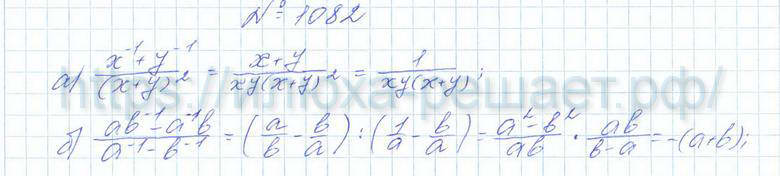 № 1082
а) (x⁻¹+y⁻¹)/(x+y)² = (x+y)/(xy(x+y)²) = 1/(xy(x+y));
https://плоха-решает.рф/
б) (ab⁻¹-a⁻¹b)/(a⁻¹-b⁻¹) = (a/b - b/a) : (1/a - b/a) = (a²-b²)/(ab) · (ab)/(b-a) = -(a+b);